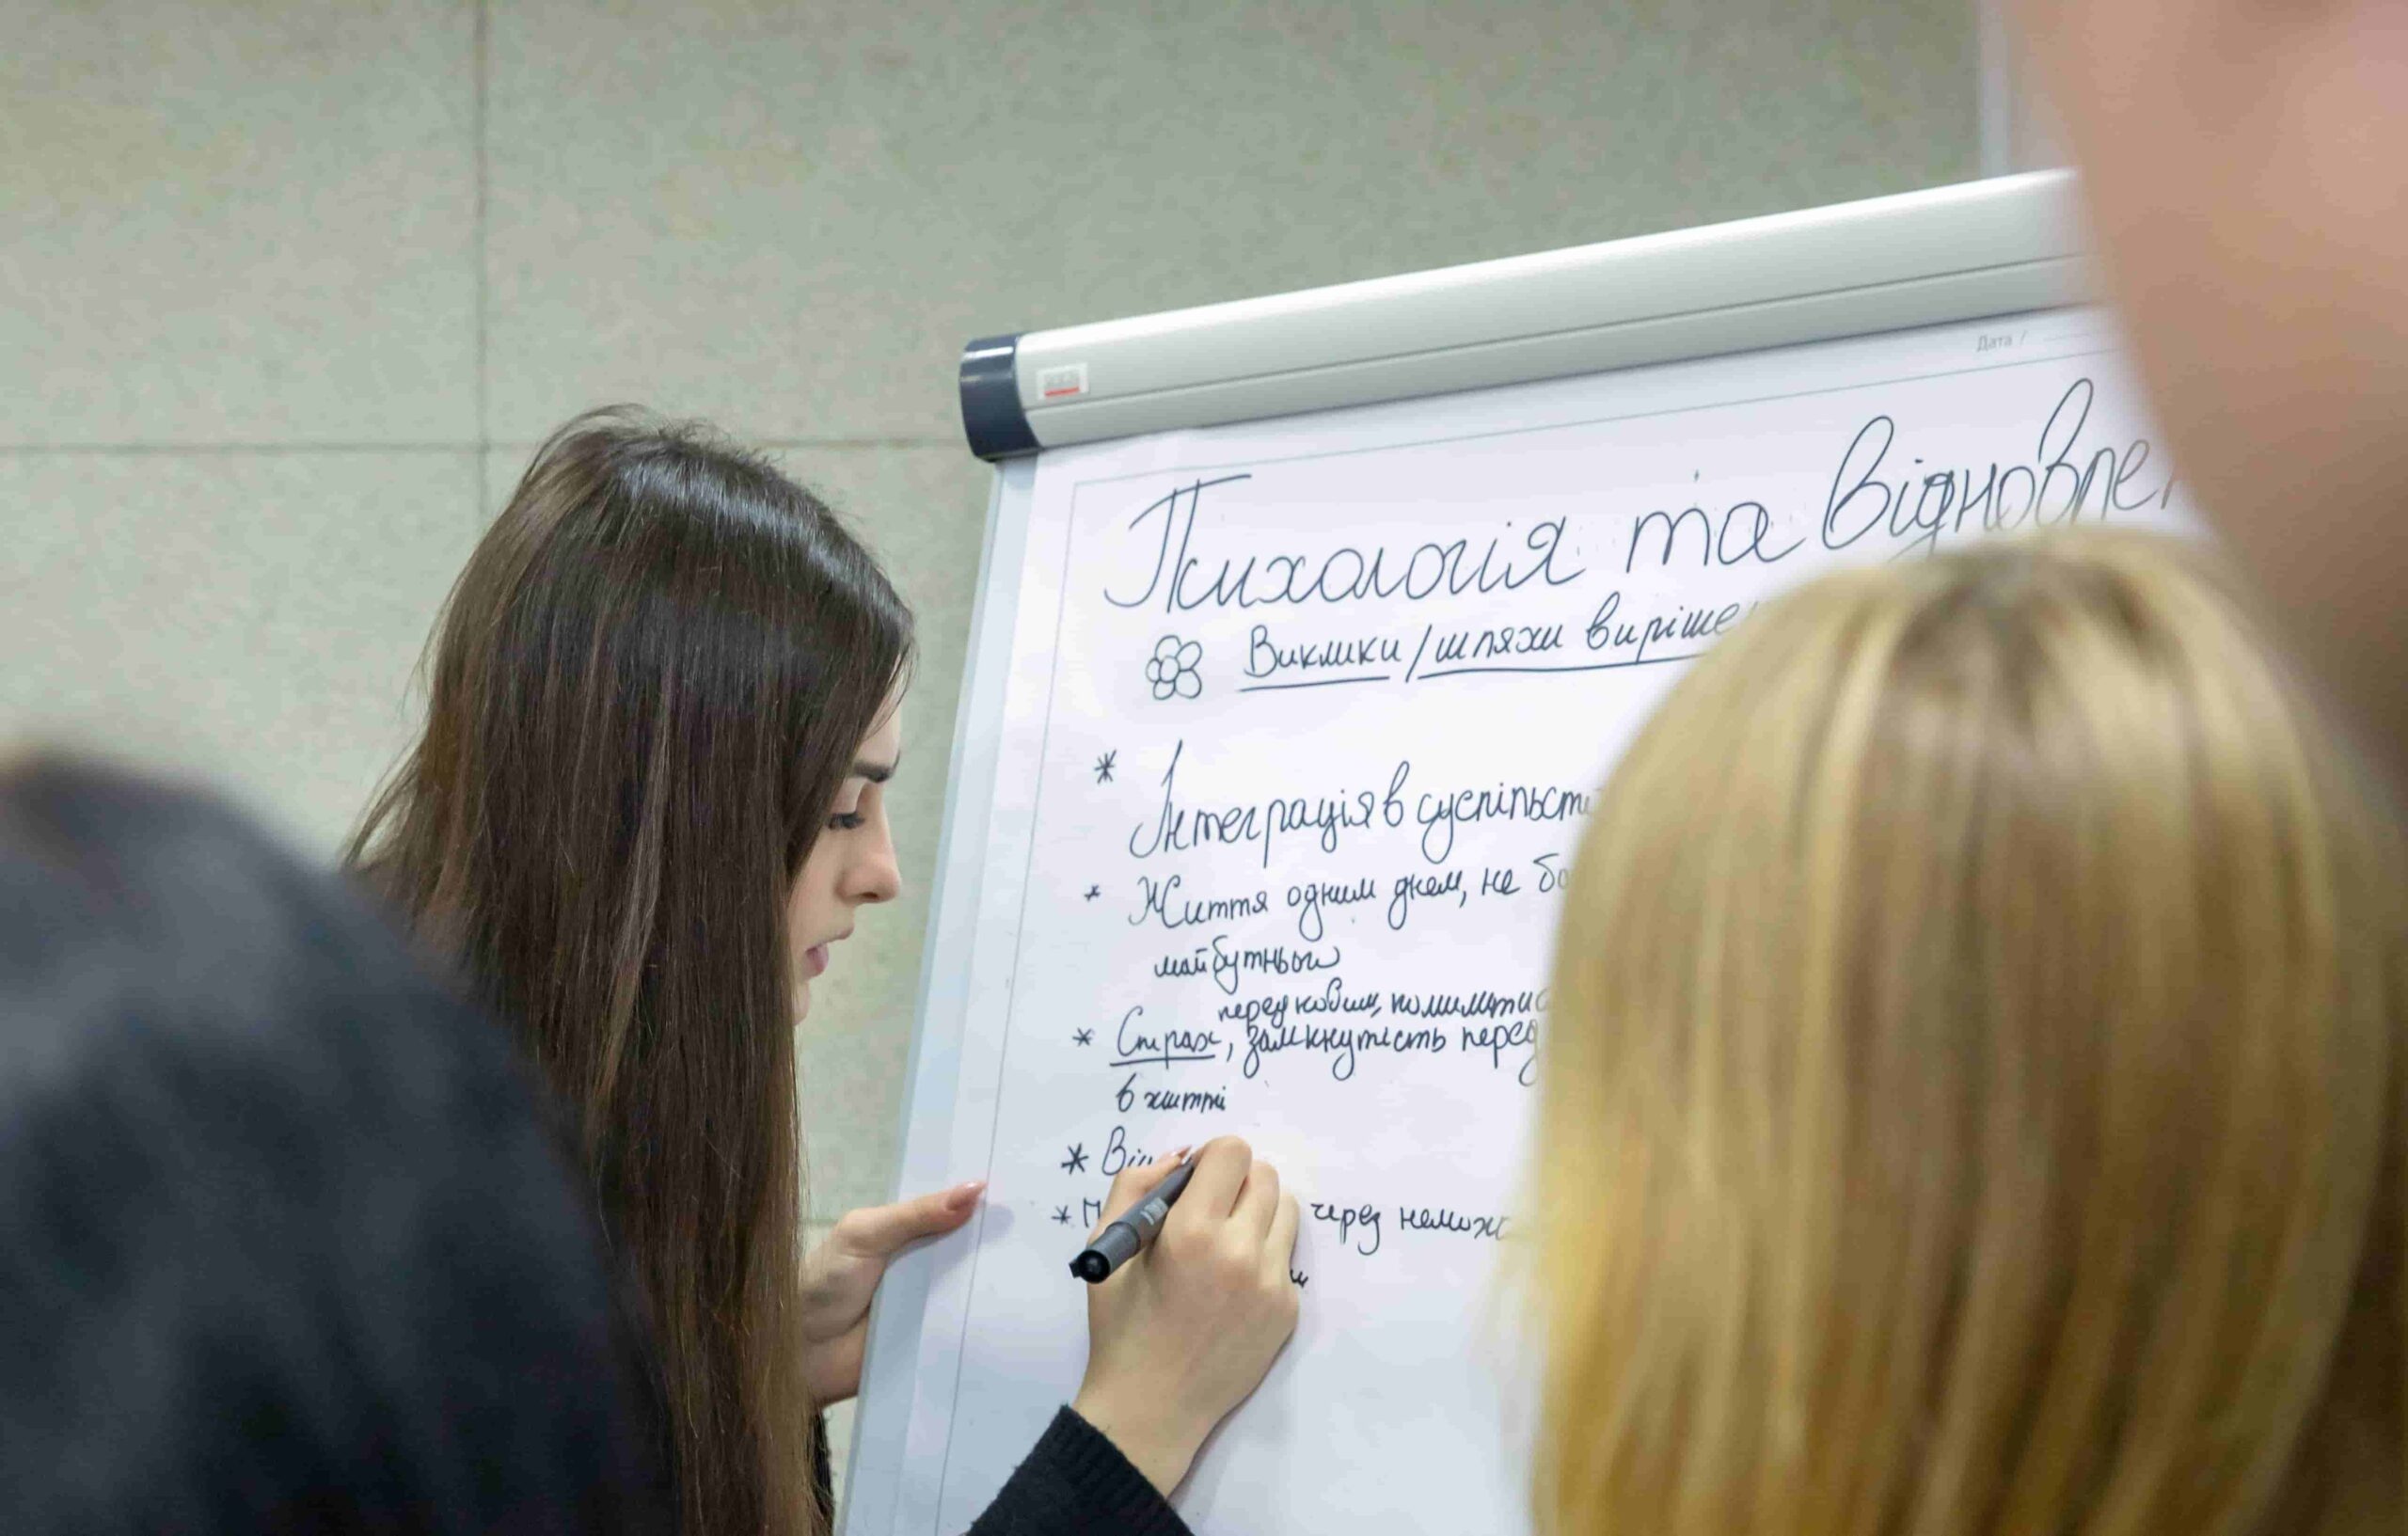 Дата /
Психологія та Відновле
Виклики/шляхи виріше
* Інтеграція в суспільст
* Життя одним днем, не бо
майбутнього
перед новим, помилитис
* Страх, замкнутість перед
в житті
* Від
* через немож